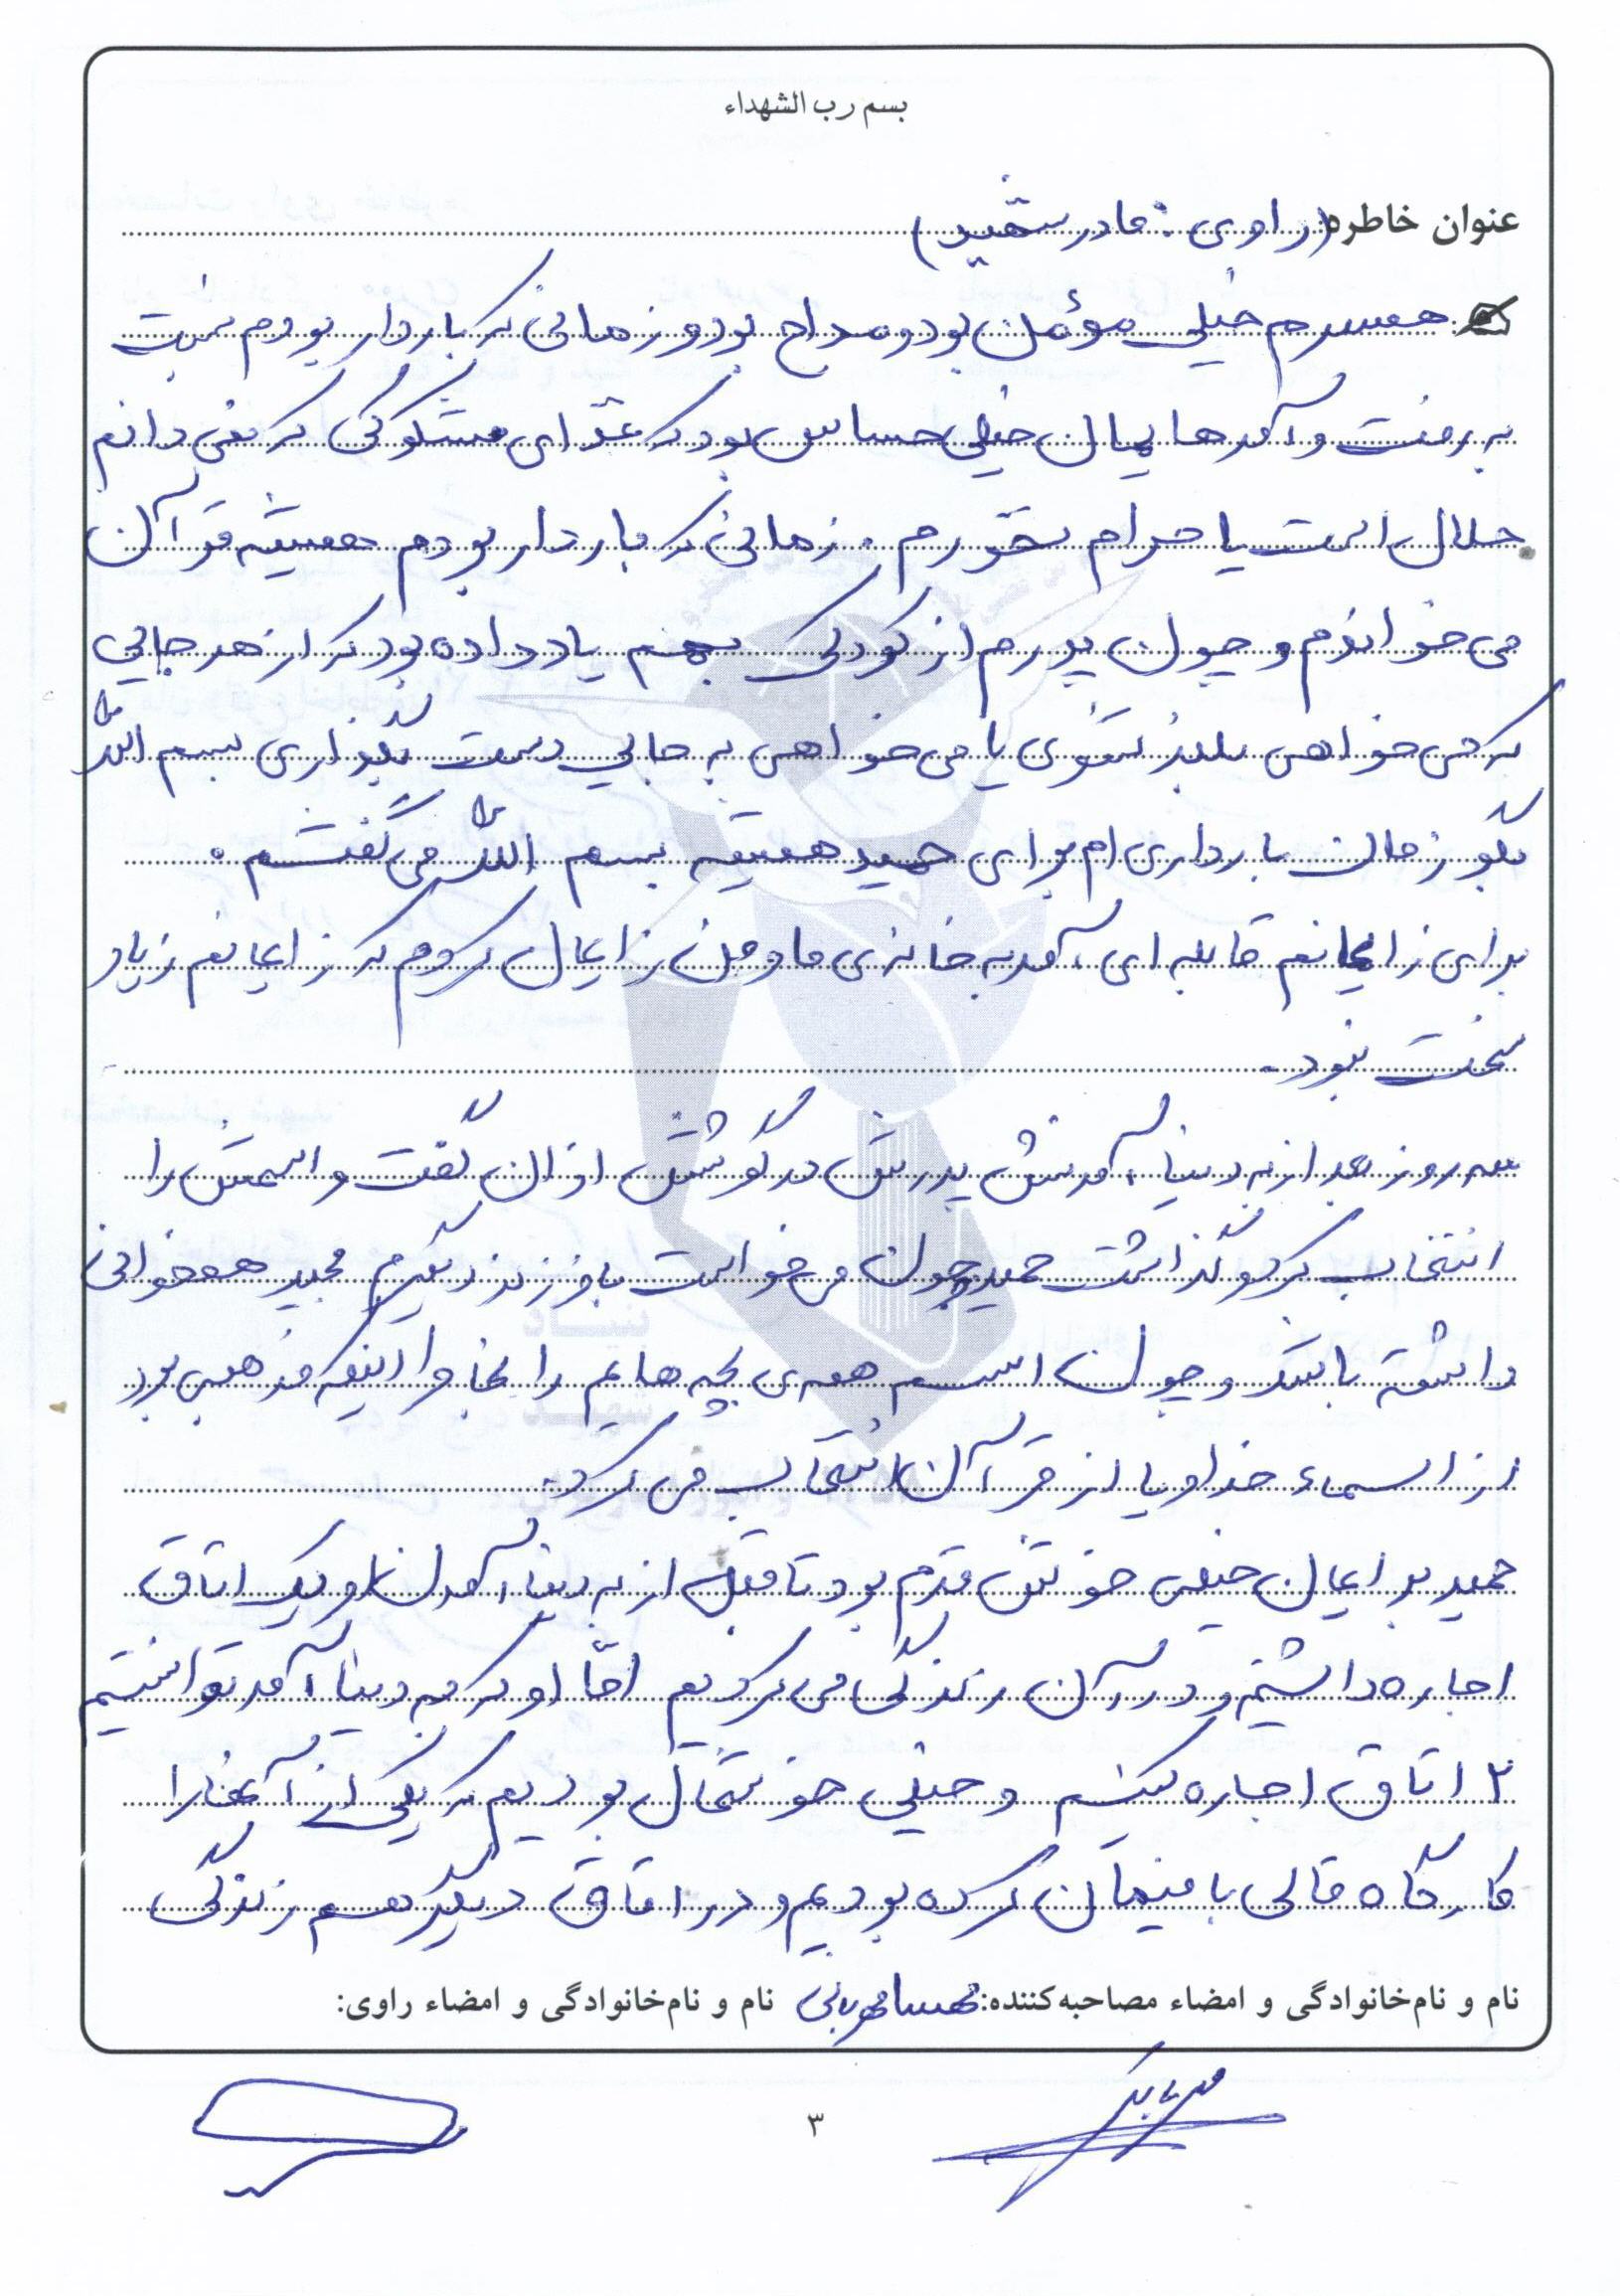 بسم رب الشهداء
عنوان خاطره: (راوی: مادر شهید)
همسرم خیلی مؤمن بود و مداح بود و زمانی که باردار بودم نسبت
به رفت و آمدهایمان خیلی حساس بود که غذای مشکوکی که نمی دانم
حلال است یا حرام نخورم. زمانی که باردار بودم همیشه قرآن
می خواندم و چون پدرم از کودکی بهم یاد داده بود که از هر جایی
که می خواهی بلند شوی یا می خواهی به جایی دست بگذاری بسم الله
بگو زمان بارداری ام برای حمید همیشه بسم الله می گفتم.
برای زایمانم قابله ای آمد به خانه ی ما و من زایمان کردم که زایمانم زیاد
سخت نبود.
سه روز بعد از به دنیا آمدنش پدرش در گوشش اذان گفت و اسمش را
انتخاب کرد و گذاشت حمید چون می خواست با فرزند دیگرم مجید همخوانی
داشته باشد و چون اسم همه ی بچه هایم را بخاطر اینکه مذهبی بود
از اسماء خدا و یا از قرآن انتخاب می کرد.
حمید برایمان خیلی خوش قدم بود تا قبل از به دنیا آمدن او یک اتاق
اجاره داشتیم و در آن زندگی می کردیم امّا او که به دنیا آمد توانستیم
۲ اتاق اجاره کنیم و خیلی خوشحال بودیم که یکی از آنها را
کارگاه قالی بافیمان کرده بودیم و در اتاق دیگر هم زندگی
نام و نام‌خانوادگی و امضاء مصاحبه‌کننده: مهسا مهربانی نام و نام‌خانوادگی و امضاء راوی:
۳